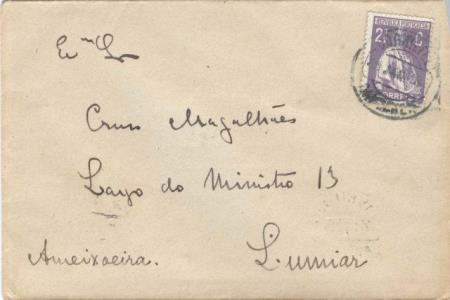 REPUBLICA PORTUGUESA
2½ C
CORREIO
Exmo Sr
Cruz Magalhães
Largo do Ministro 13
Ameixoeira. Lumiar